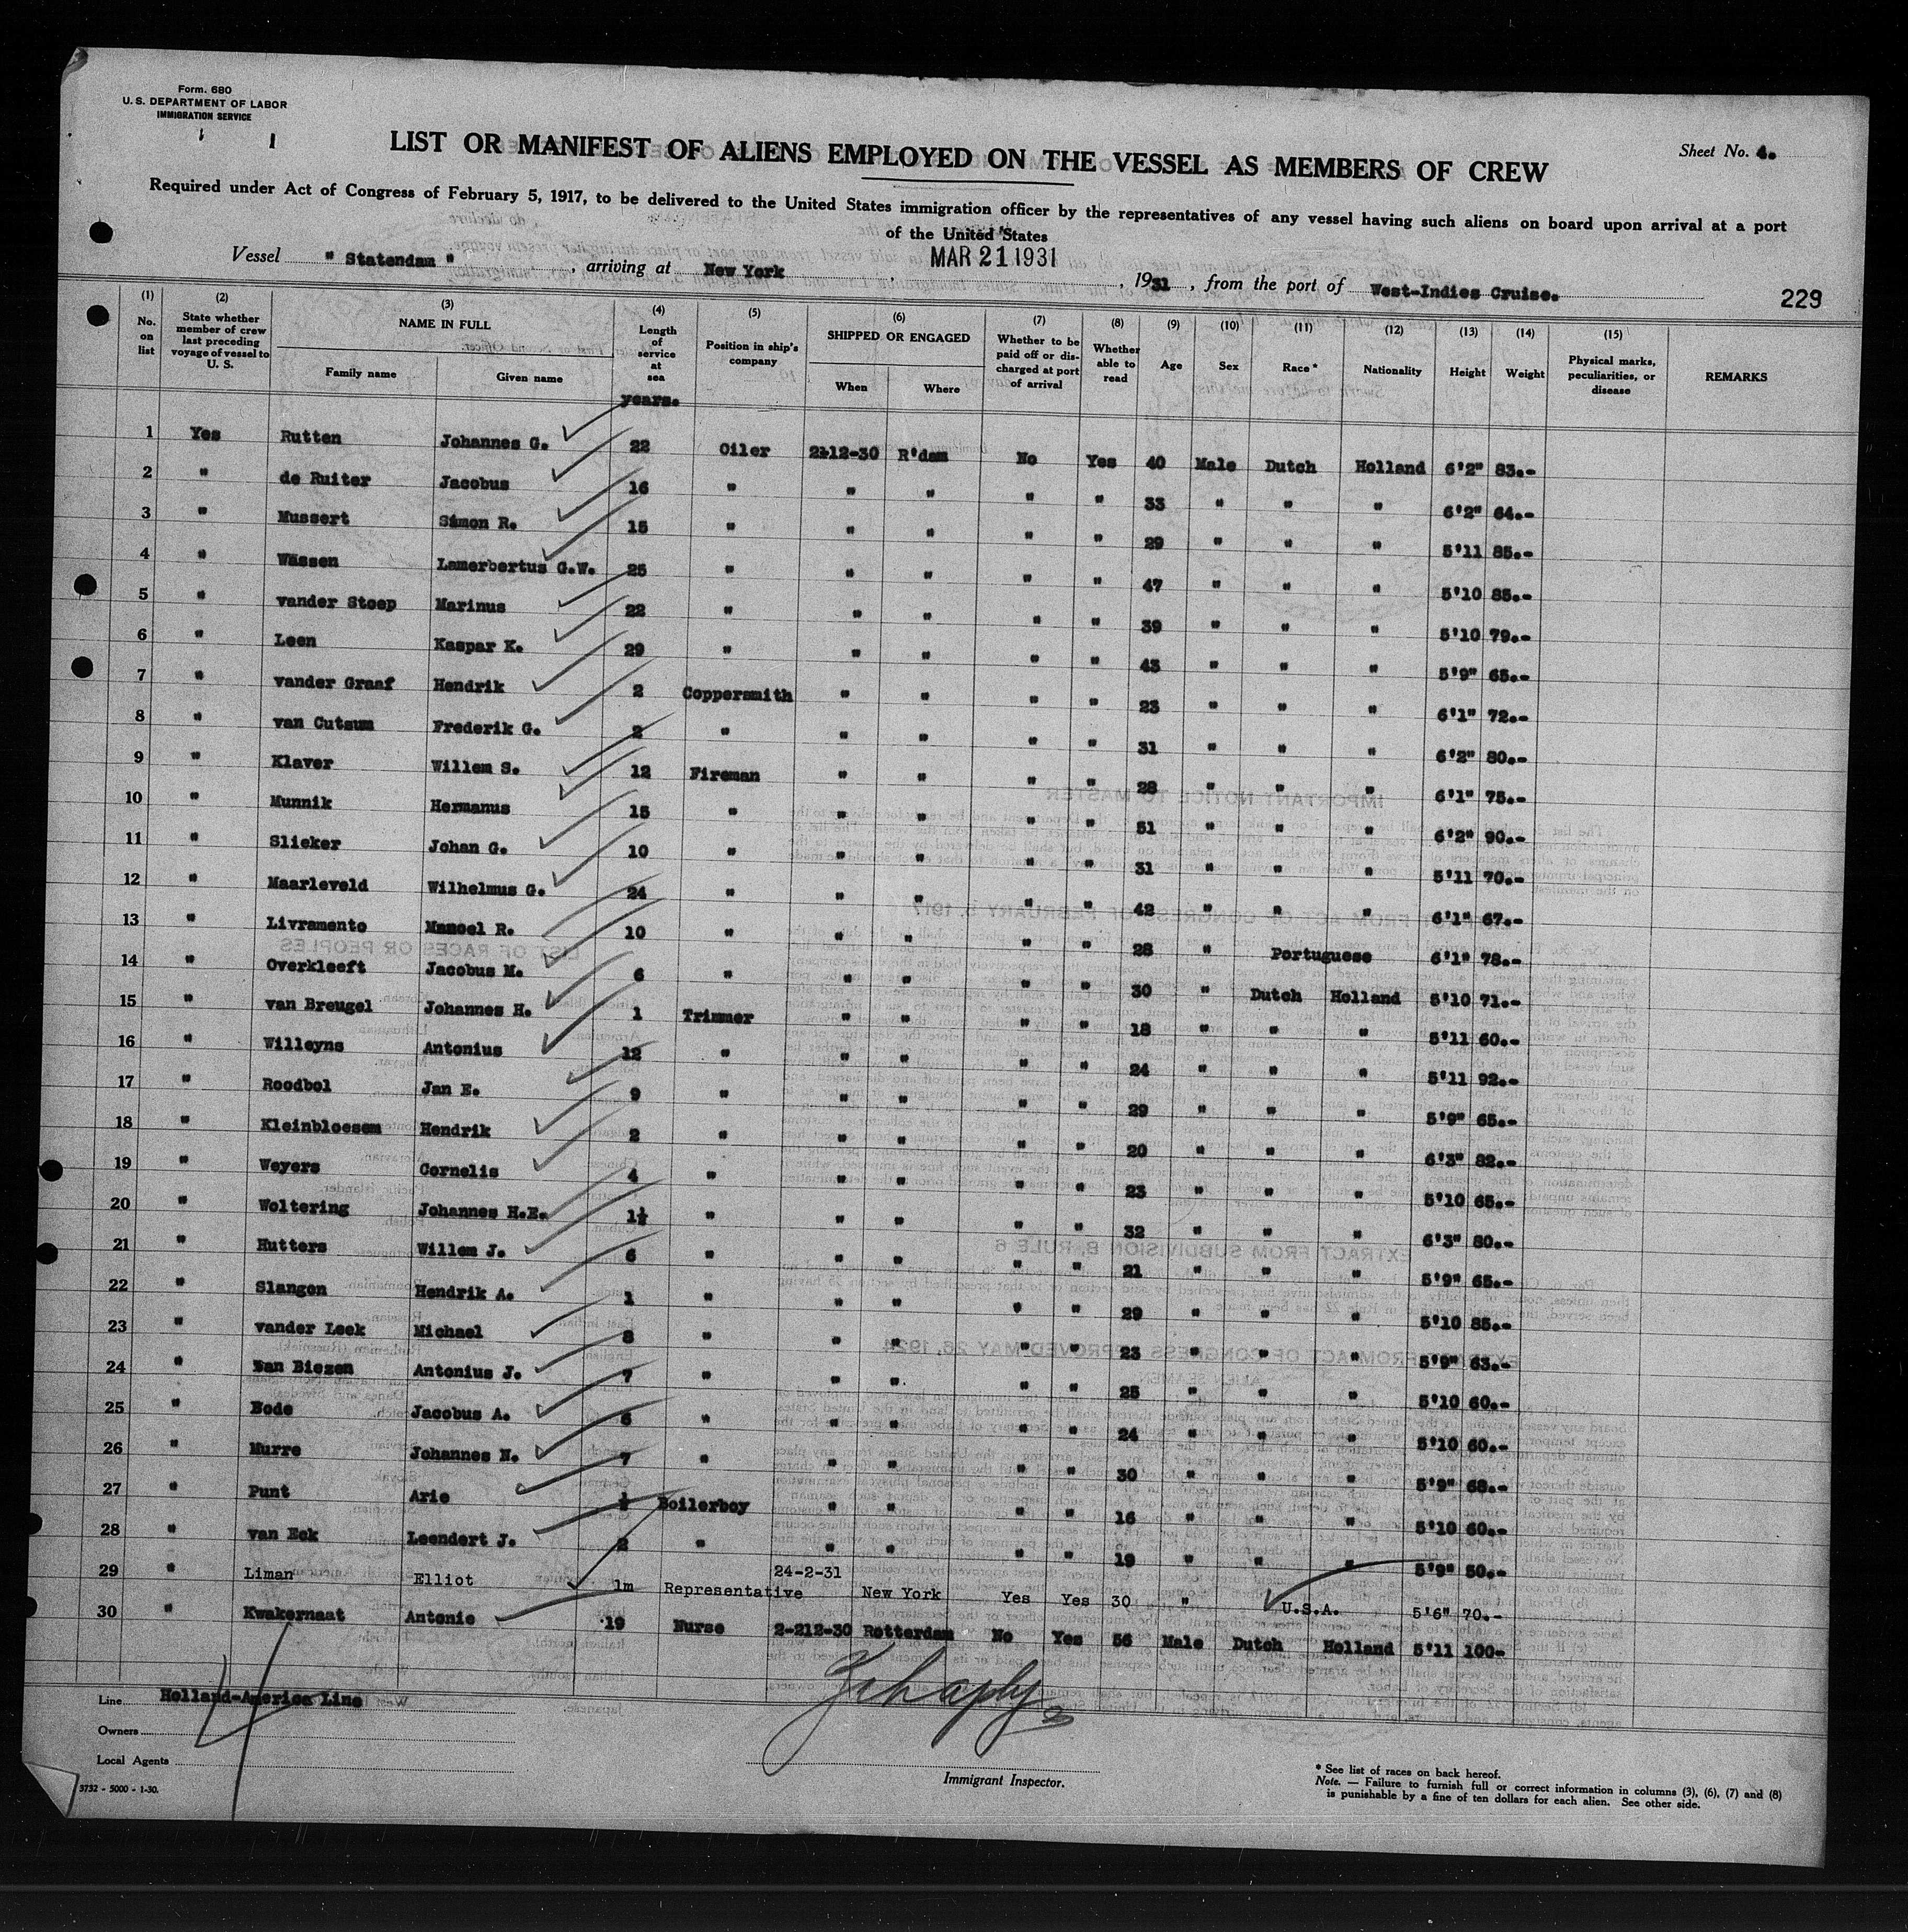 Form. 680
U. S. DEPARTMENT OF LABOR
IMMIGRATION SERVICE
LIST OR MANIFEST OF ALIENS EMPLOYED ON THE VESSEL AS MEMBERS OF CREW
Sheet No. 4.
Required under Act of Congress of February 5, 1917, to be delivered to the United States immigration officer by the representatives of any vessel having such aliens on board upon arrival at a port
of the United States
Vessel " Statendam " , arriving at New York , MAR 21 1931 , 1931 , from the port of West-Indies Cruise.
229
(1) (2) (3) (4) (5) (6) (7) (8) (9) (10) (11) (12) (13) (14) (15)
No. on list State whether member of crew last preceding voyage of vessel to U. S. NAME IN FULL Family name Given name Length of service at sea Position in ship's company SHIPPED OR ENGAGED When Where Whether to be paid off or discharged at port of arrival Whether able to read Age Sex Race * Nationality Height Weight Physical marks, peculiarities, or disease REMARKS
years.
1 Yes Rutten Johannes G. 22 Oiler 2-12-30 R'dam No Yes 40 Male Dutch Holland 6'2" 83.-
2 " de Ruiter Jacobus 16 " " " " " 33 " " " 6'2" 64.-
3 " Mussert Simon R. 15 " " " " " 29 " " " 5'11 85.-
4 " Wassen Lamerbertus G.W. 25 " " " " " 47 " " " 5'10 85.-
5 " vander Stoep Marinus 22 " " " " " 39 " " " 5'10 79.-
6 " Leen Kaspar K. 29 " " " " " 43 " " " 5'9" 65.-
7 " vander Graaf Hendrik 2 Coppersmith " " " " 23 " " " 6'1" 72.-
8 " van Cutsum Frederik G. 2 " " " " " 31 " " " 6'2" 80.-
9 " Klaver Willem S. 12 Fireman " " " " 28 " " " 6'1" 75.-
10 " Munnik Hermanus 15 " " " " " 51 " " " 6'2" 90.-
11 " Slieker Johan G. 10 " " " " " 31 " " " 5'11 70.-
12 " Maarleveld Wilhelmus G. 24 " " " " " 42 " " " 6'1" 67.-
13 " Livramento Manoel R. 10 " " " " " 28 " Portuguese 6'1" 78.-
14 " Overkleeft Jacobus M. 6 " " " " " 30 " Dutch Holland 5'10 71.-
15 " van Breugel Johannes H. 1 Trimmer " " " " 18 " " " 5'11 60.-
16 " Willeyns Antonius 12 " " " " " 24 " " " 5'11 92.-
17 " Roodbol Jan E. 9 " " " " " 29 " " " 5'9" 65.-
18 " Kleinbloesem Hendrik 2 " " " " " 20 " " " 6'3" 82.-
19 " Weyers Cornelis 4 " " " " " 23 " " " 5'10 65.-
20 " Woltering Johannes H.E. 1½ " " " " " 32 " " " 6'3" 80.-
21 " Hutters Willem J. 6 " " " " " 21 " " " 5'9" 65.-
22 " Slangen Hendrik A. 1 " " " " " 29 " " " 5'10 85.-
23 " vander Leek Michael 8 " " " " " 23 " " " 5'9" 63.-
24 " van Biezen Antonius J. 7 " " " " " 25 " " " 5'10 60.-
25 " Bode Jacobus A. 6 " " " " " 24 " " " 5'10 60.-
26 " Murre Johannes N. 7 " " " " " 30 " " " 5'9" 68.-
27 " Punt Arie ½ Boilerboy " " " " 16 " " " 5'10 60.-
28 " van Eck Leendert J. 2 " " " " " 19 " " " 5'9" 50.-
29 " Liman Elliot 1m Representative 24-2-31 New York Yes Yes 30 " U.S.A. 5'6" 70.-
30 " Kwakernaat Antonie 19 Nurse 2-212-30 Rotterdam No Yes 56 Male Dutch Holland 5'11 100-
Line Holland-America Line
Owners
Local Agents
3732 - 5000 - 1-30.
Immigrant Inspector.
* See list of races on back hereof.
Note. — Failure to furnish full or correct information in columns (3), (6), (7) and (8)
is punishable by a fine of ten dollars for each alien. See other side.